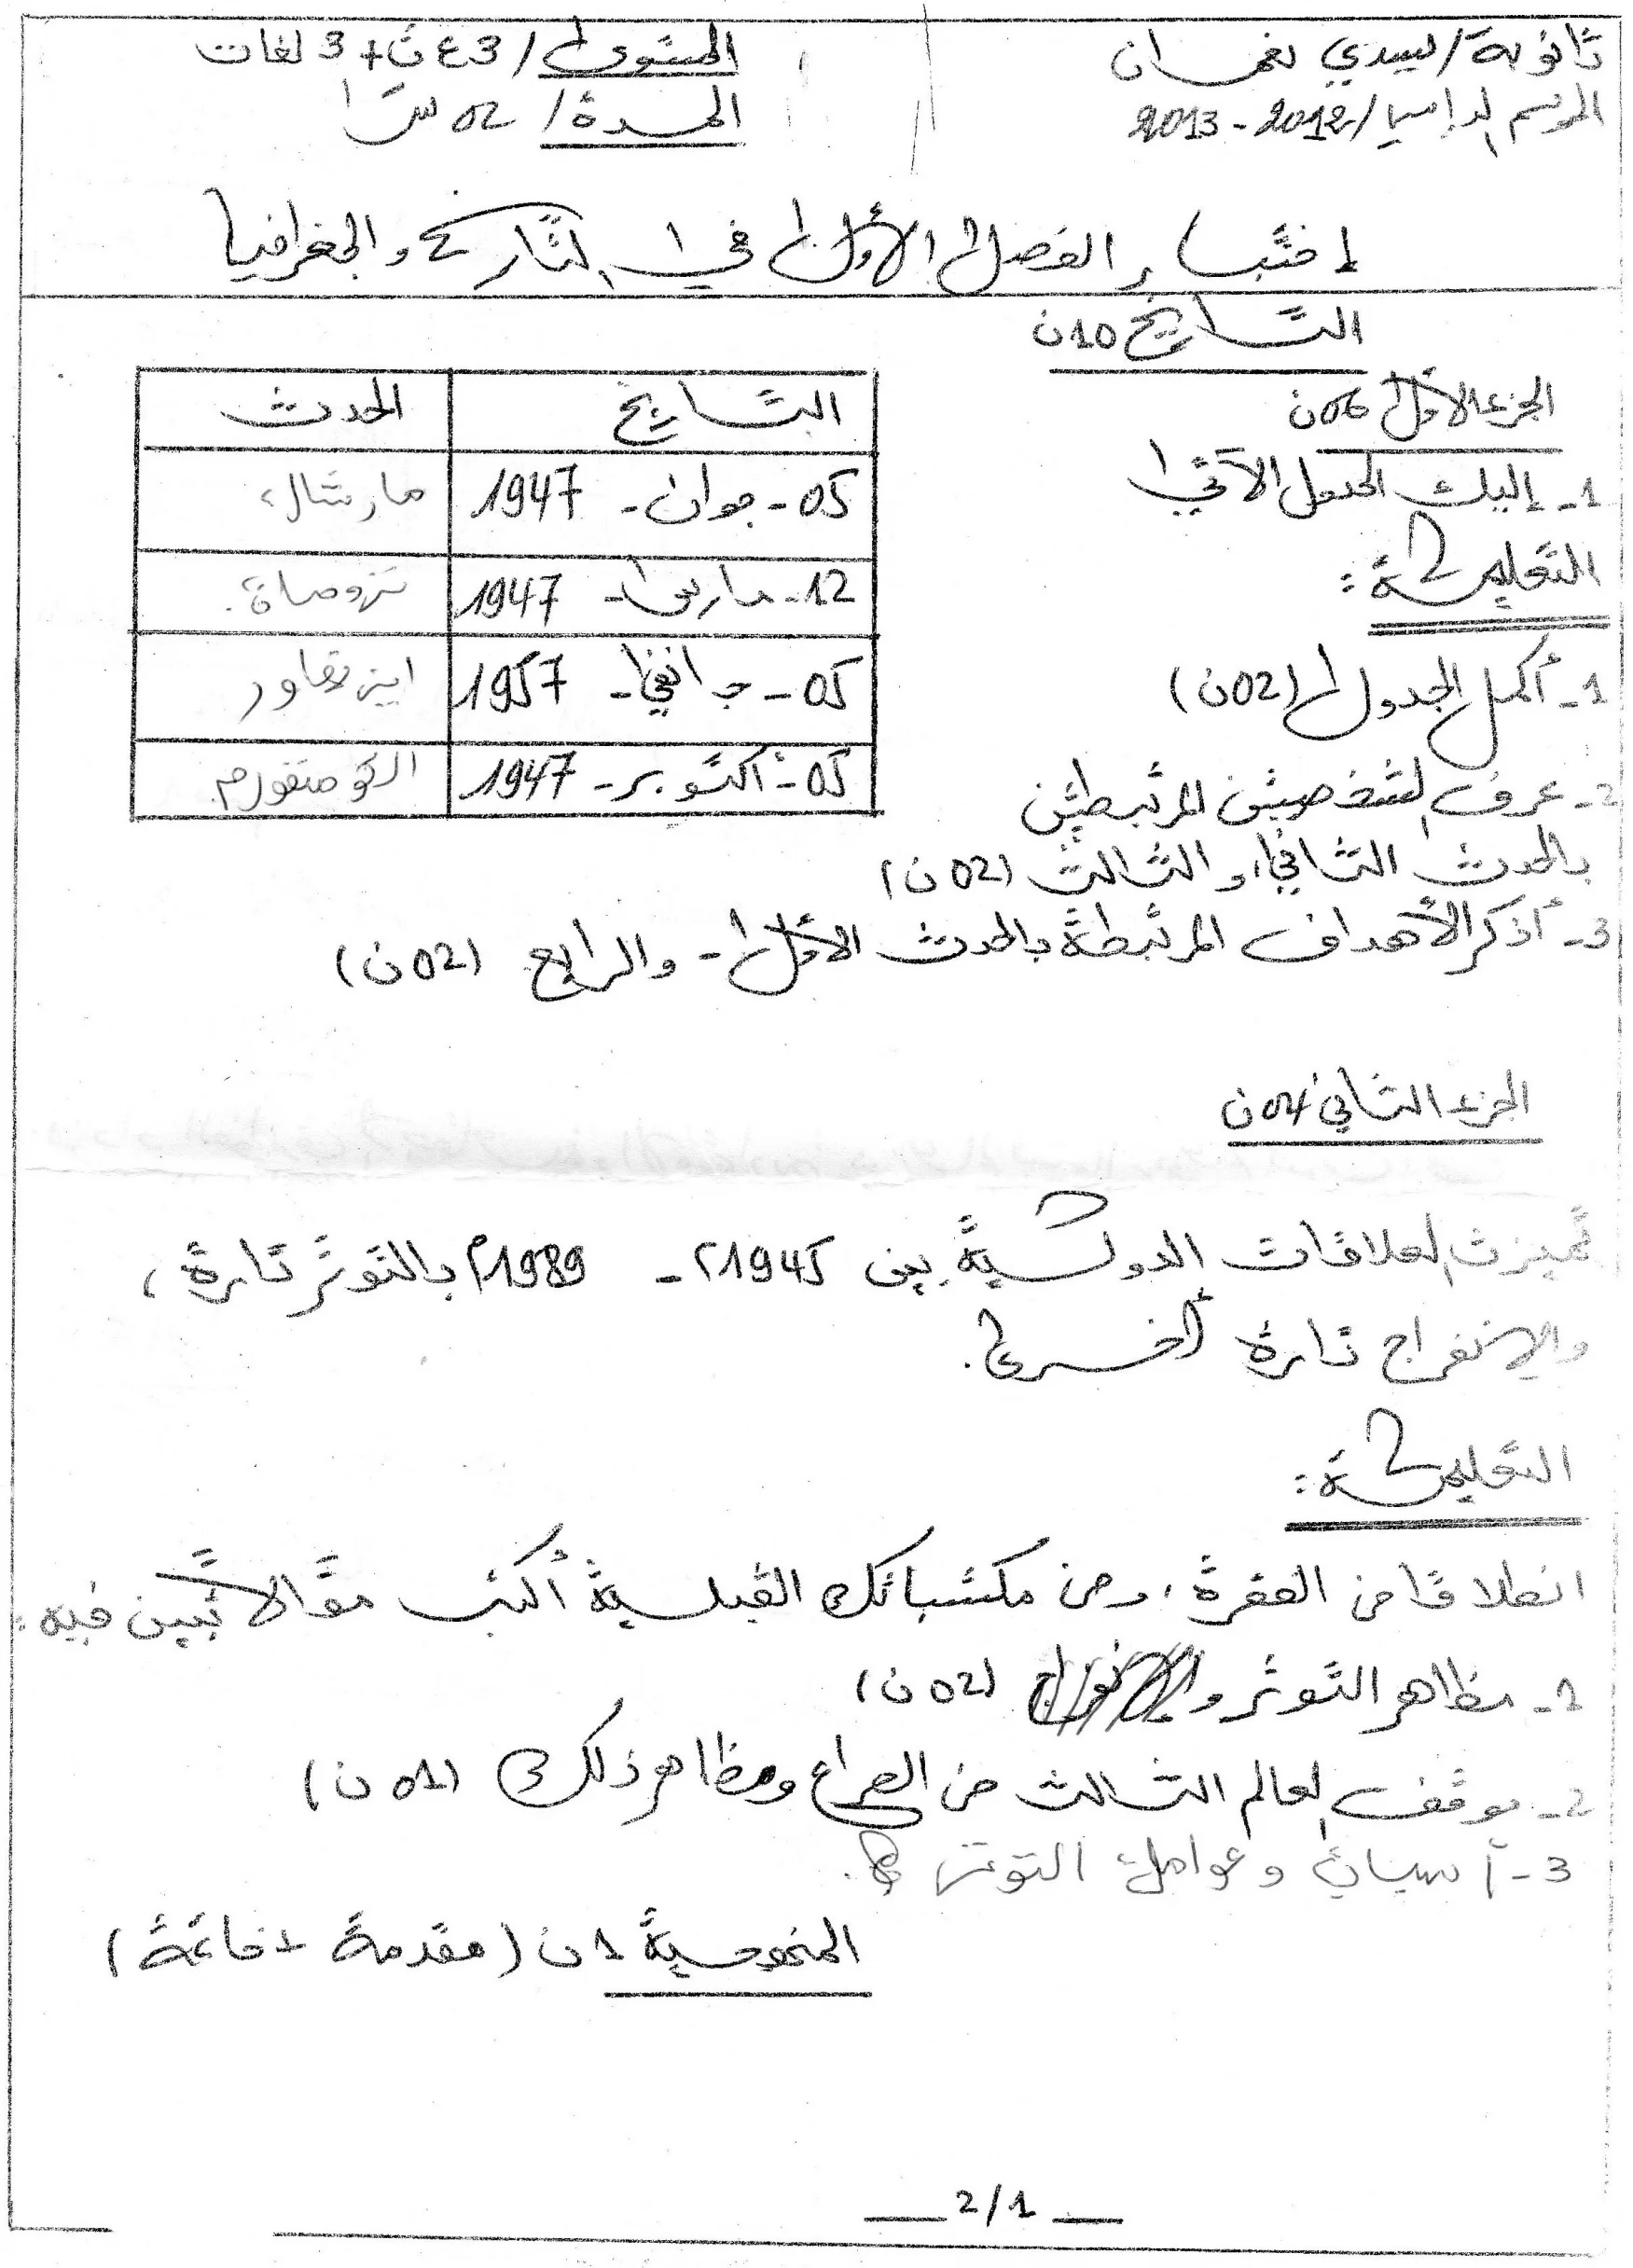 ثانوية/سيدي نعمان
المستوى/ 3ع ت + 3 لغات
الموسم الدراسي/2012 - 2013
المدة/ 02 سا
اختبار الفصل الأول في التاريخ والجغرافيا
التاريخ 10ن
الجزء الأول 06ن
1- إليك الجدول الآتي
التعليمة:
1- أكمل الجدول (02ن)
2- عرف الشخصيتين المرتبطتين
بالحدث الثاني، والثالث (02ن)
3- أذكر الأهداف المرتبطة بالحدث الأول - والرابع (02ن)
التاريخ | الحدث
05 - جوان - 1947 | مارشال
12 - مارس - 1947 | ترومان
05 - جانفي - 1957 | ايزنهاور
05 - أكتوبر - 1947 | الكومنفورم
الجزء الثاني 04ن
تميزت العلاقات الدولية بين 1945م - 1989م بالتوتر تارة،
والإنفراج تارة أخرى.
التعليمة:
انطلاقا من الفقرة، ومن مكتسباتك القبلية أكتب مقالا تبين فيه:
1- مظاهر التوتر والإنفراج (02ن)
2- موقف العالم الثالث من الصراع ومظاهر ذلك (01ن)
3- أسباب وعوامل التوتر
المنهجية 1ن (مقدمة + خاتمة)
2/1